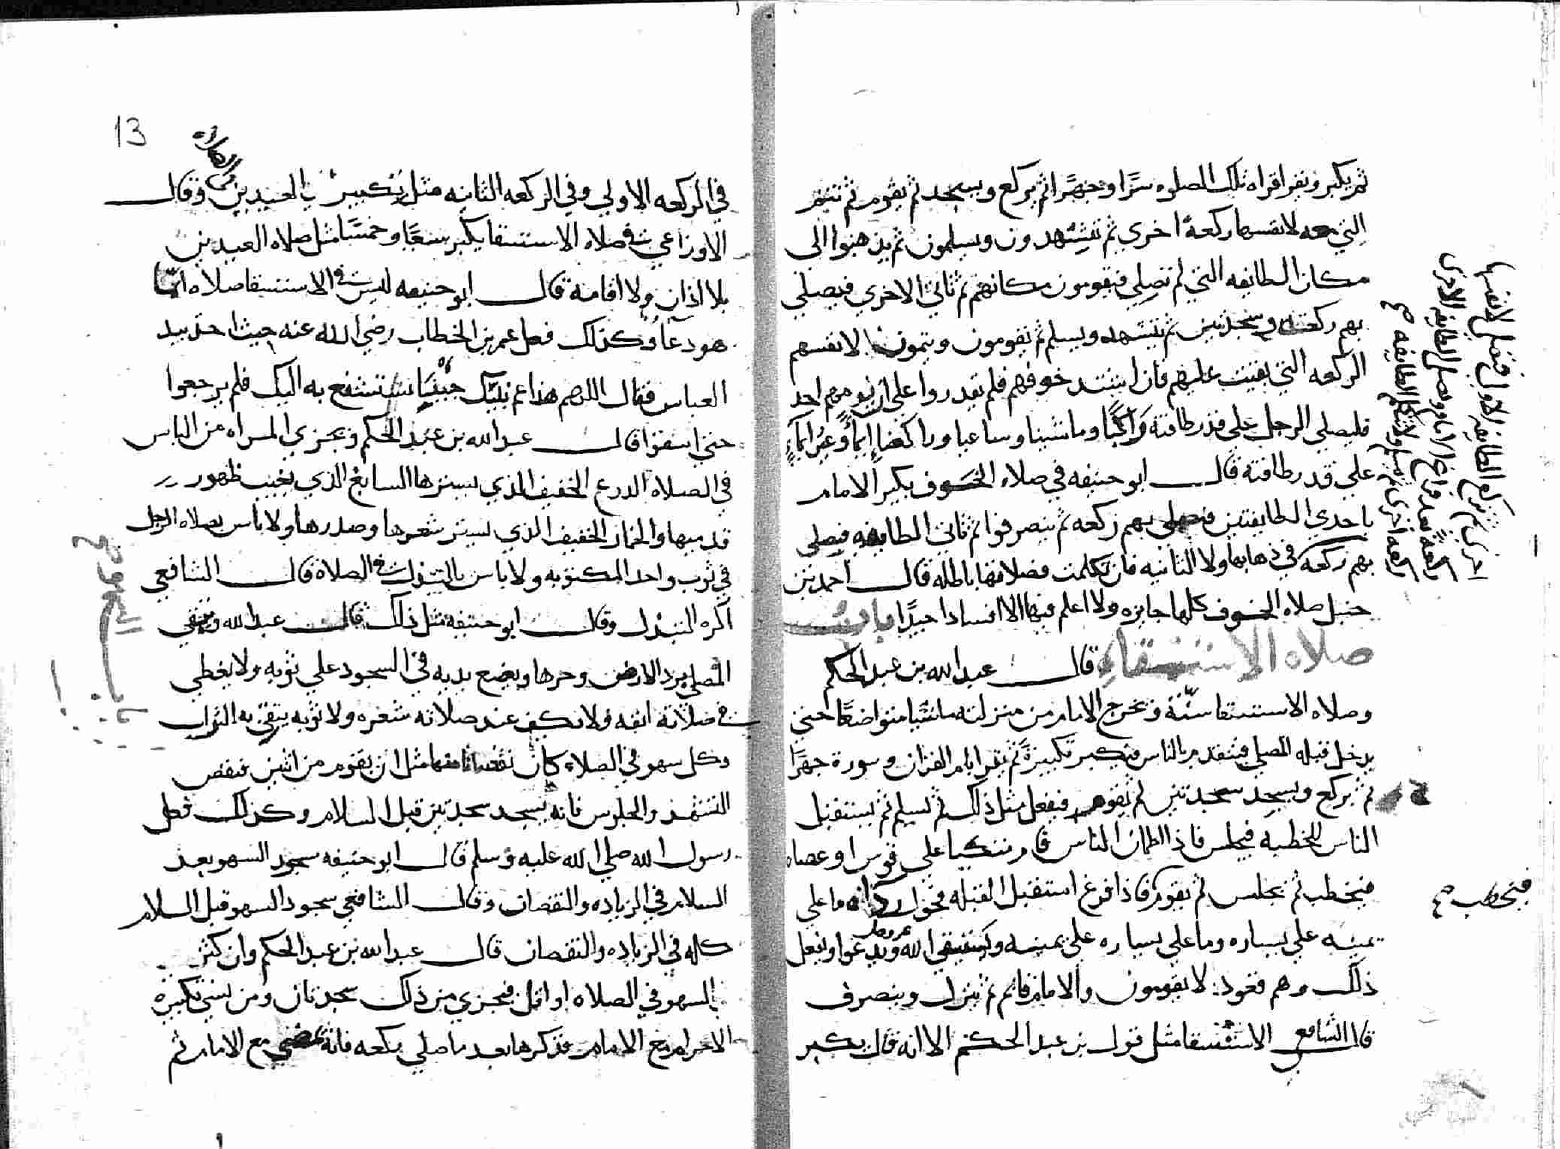 ثم يكبر ويقرا قراه تلك الصلوه سرًا وجهرًا ثم يركع ويسجد ثم يقوم ثم تتم
التي معه لانفسها ركعهً اخري ثم تتشهدون ويسلمون ثم يذهبوا الى
مكان الطايفه التي لم تصلي فيقومون مكانهم ثم تاتي الاخري فيصلي
بهم ركعه وسجدتين ثم يتشهد ويسلم ثم يقومون ويتمون لانفسهم
الركعه التي بقيت عليهم فان اشتد خوفهم فلم يقدروا على ان يومهم احد
فليصلي الرجل على قدر طاقته راكبًا وماشيا وساعيا وراكضا ايماءً وغير ايماءٍ
على قدر طاقته قال ابو حنيفه في صلاه الخوف يكبر الامام
باحدي الطايفتين فيصلي بهم ركعه ثم ينصرفوا ثم تاتي الطايفه فيصلي
بهم ركعه في ذهابها ولا الثانيه فان تكلمت فصلاتها باطله قال احمد بن
حنبل صلاه الخوف كلها جايزه ولا اعلم فيها الا اسنادا جيدًا باب
صلاه الاستسقاء قال عبد الله بن عبد الحكم
وصلاه الاستسقا سنّة ويخرج الامام من منزله ماشيًا متواضعًا حتي
يدخل قبله المصلي فيتقدم بالناس فيكبر تكبيرةً ثم يقرا بام القران وسورة جهرًا
ثم يركع ويسجد سجدتين ثم يقوم فيفعل مثل ذلك ثم يسلم ثم يستقبل
الناس للخطبه فيجلس فاذا اطمان الناس قام متكيا على قوس او عصاه
فيخطب ثم يجلس ثم يقوم فاذا فرغ استقبل القبله فحول رداه ما على
يمينه على يساره وما على يساره على يمينه ويستسقي الله ويدعوا ويفعل
ذلك وهم قعود لا يقومون والامام قايم ثم ينزل وينصرف
قال الشافعي الاستسقا مثل قول بن عبد الحكم الا انه قال يكبر
اخري ثم تركع الطايفه الاول فتصلي لانفسها
ركعهً بعد فراغ الامام وتصلي الطايفه الاخري
ركعه اخري ولا تتكلم الطايفه صح
فيخطب صح
13
في الركعه الاولي وفي الركعه الثانيه مثل تكبير في العيدين وقال
الاوزاعي في صلاه الاستسقا يكبر سبعًا وخمسًا مثل صلاه العيدين
بلا اذان ولا اقامة قال ابو حنيفه ليس في الاستسقا صلاه انما
هو دعاً وكذلك فعل عمر بن الخطاب رضي الله عنه حيث اخذ بيد
العباس فقال اللهم هذا عم نبيك جينا نستشفع به اليك فلم يرجعوا
حتي اسقوا قال عبد الله بن عبد الحكم ويجزي المراه من اللباس
في الصلاه الدرع الخفيف الذي يسترها السابغ الذي يغيب ظهور
قدميها والخمار الخفيف الذي يستر شعرها وصدرها ولا باس بصلاه الرجل
في ثوب واحد المكتوبه ولا باس بالسدل في الصلاة قال الشافعي
اكره السدل وقال ابو حنيفه مثل ذلك قال عبد الله ويتقي
المصلي برد الارض وحرها ويضع يديه في السجود على ثوبه ولا يغطي
في صلاته انفه ولا يكف عند صلاته شعره ولا ثوبه يتقي به التراب
وكل سهو في الصلاه كان نقصانا منها مثل ان يقوم من اثنين فينقص
التشهد والجلوس فانه يسجد سجدتين قبل السلام وكذلك فعل
رسول الله صلي الله عليه وسلم قال ابو حنيفه سجود السهو بعد
السلام في الزياده والنقصان وقال الشافعي سجود السهو قبل السلام
كله في الزياده والنقصان قال عبد الله بن عبد الحكم وان كثر
السهو في الصلاه او اقل فيجزي من ذلك سجدتان ومن نسي تكبيرة
الاحرام مع الامام فذكرها بعد ما صلي ركعه فانه يمضي مع الامام ثم
باب السهو صح